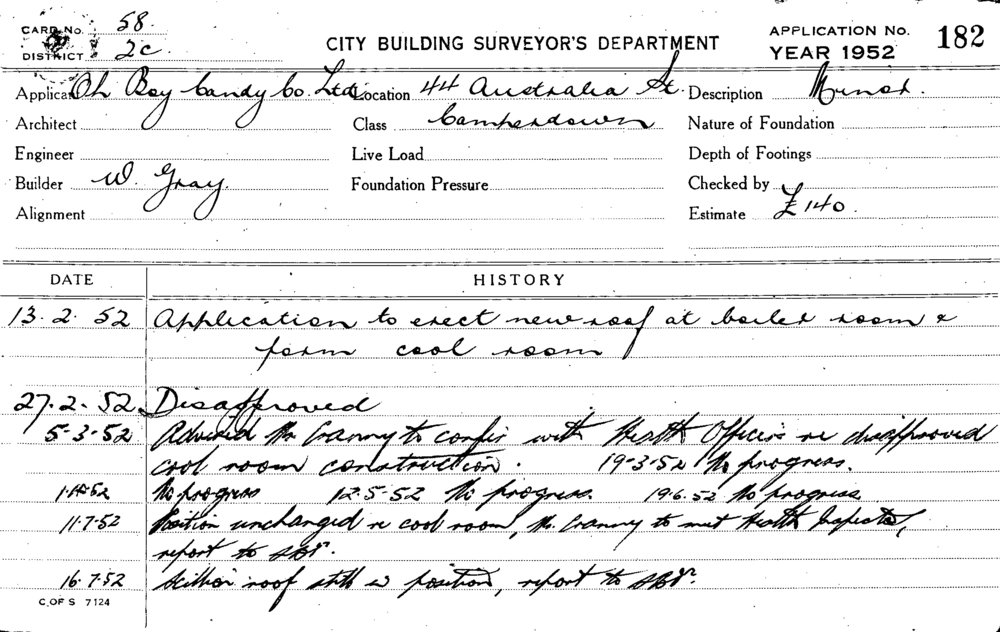 CARD No. 58
DISTRICT 2c
CITY BUILDING SURVEYOR'S DEPARTMENT
APPLICATION No. 182
YEAR 1952
Applicant Oh Boy Candy Co. Ltd. Location 44 Australia St. Description Minor.
Architect Class Camperdown Nature of Foundation
Engineer Live Load Depth of Footings
Builder W. Gray. Foundation Pressure Checked by
Alignment Estimate £140.
DATE HISTORY
13.2.52 Application to erect new roof at boiler room &
form cool room
27.2.52. Disapproved
5.3.52 Advised Mr Cranny to confer with Health Officers re disapproved
cool room construction. 19-3-52 No progress.
52 No progress 12.5-52 No progress. 19.6.52 No progress
11.7.52 Position unchanged re cool room, Mr. Cranny to meet Health Inspector,
report to
16.7.52 Skillion roof still in position, report to
C. OF S 7124